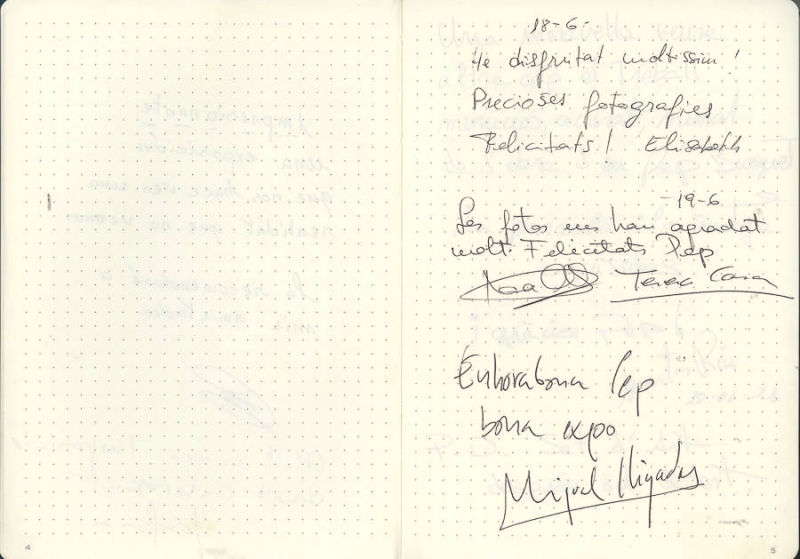 18-6-
He disfrutat moltissim!
Precioses fotografies
Felicitats! Elisabeth
-19-6
Les fotos ens han agradat
molt. Felicitats Pep
Teresa Casa
Enhorabona Pep
bona expo
Miquel
4
5